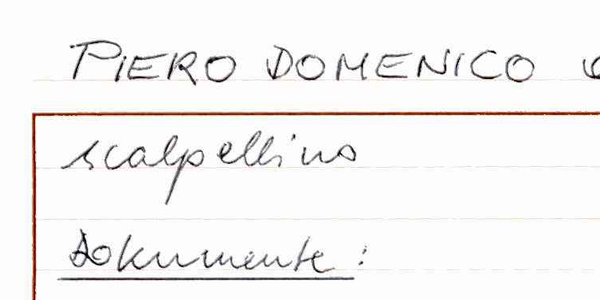 PIERO DOMENICO
scalpellino
Dokumente: